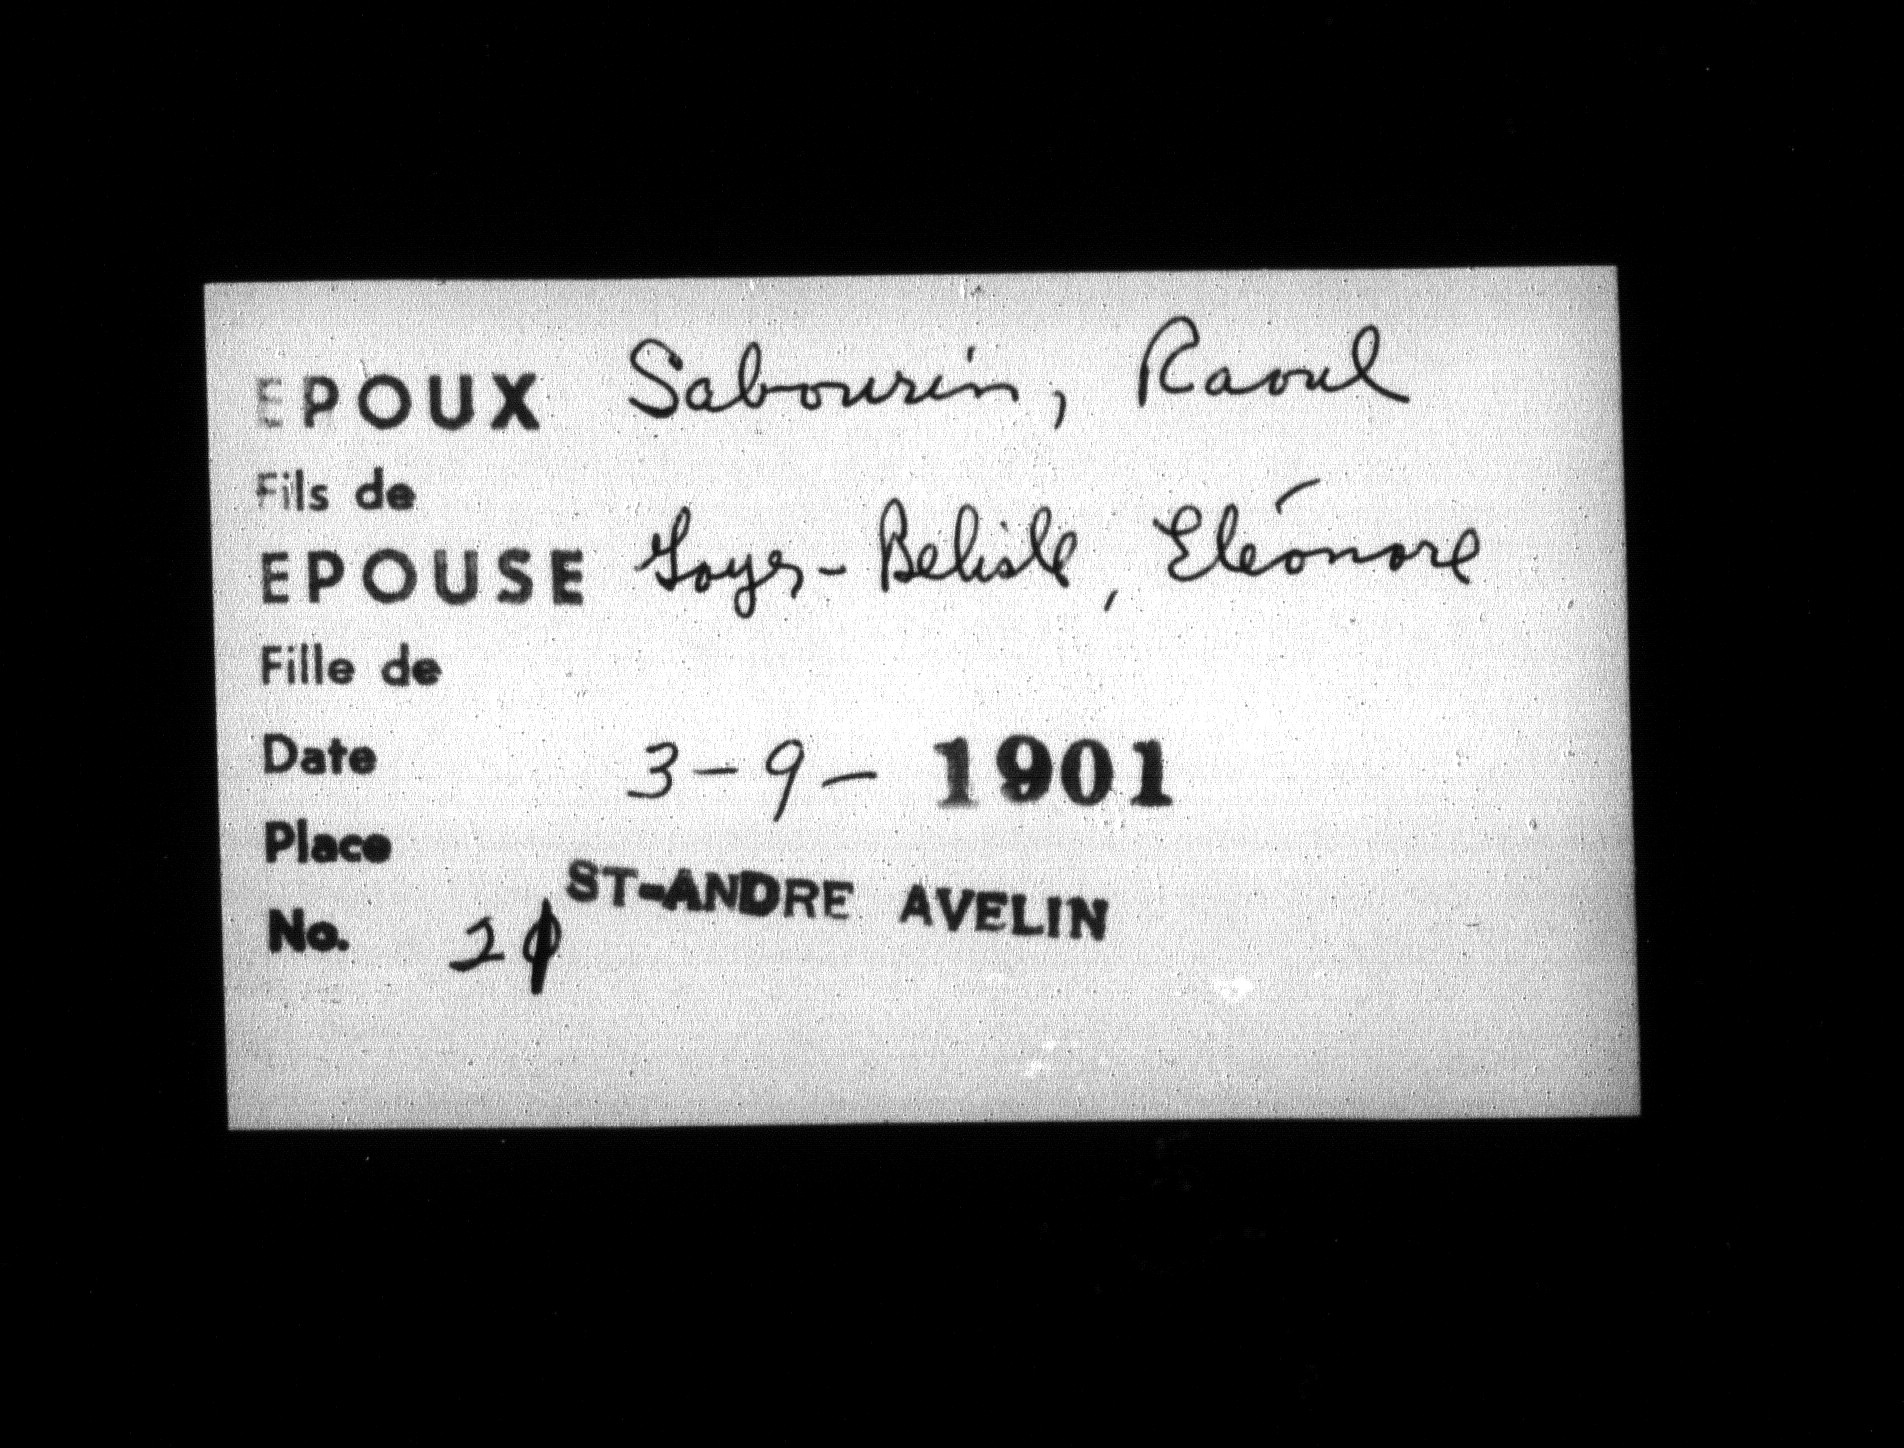 EPOUX Sabourin, Raoul
Fils de
EPOUSE Goyer-Belisle, Eléonore
Fille de
Date 3-9-1901
Place ST-ANDRE AVELIN
No.